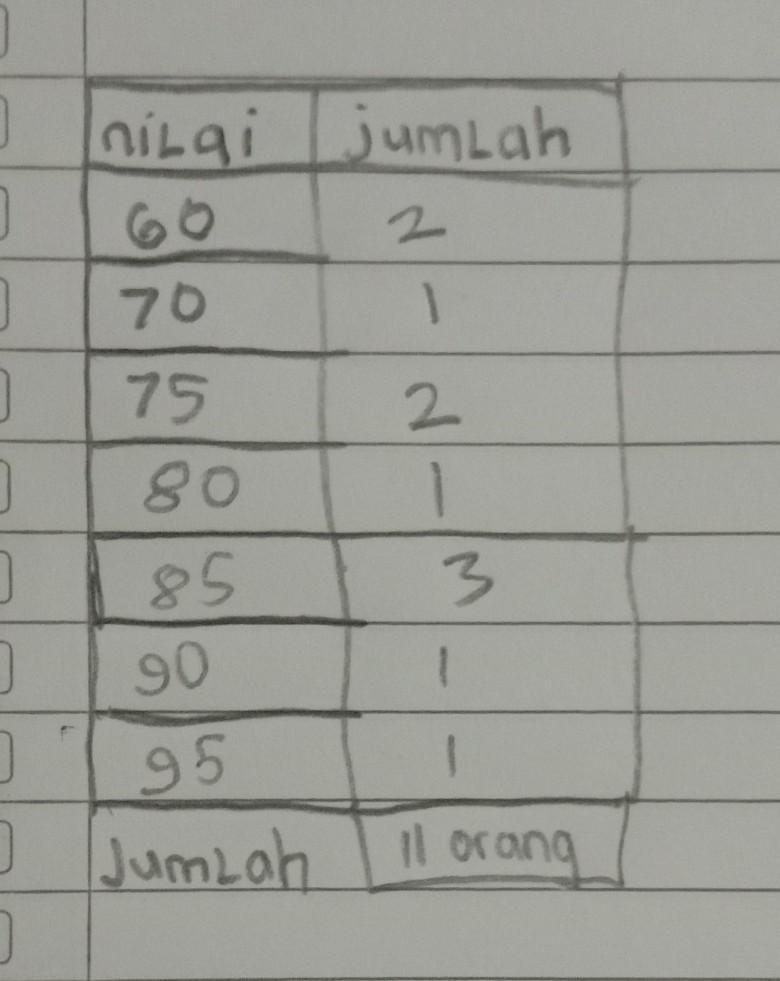 niLai jumLah
60 2
70 1
75 2
80 1
85 3
90 1
95 1
JumLah 11 orang